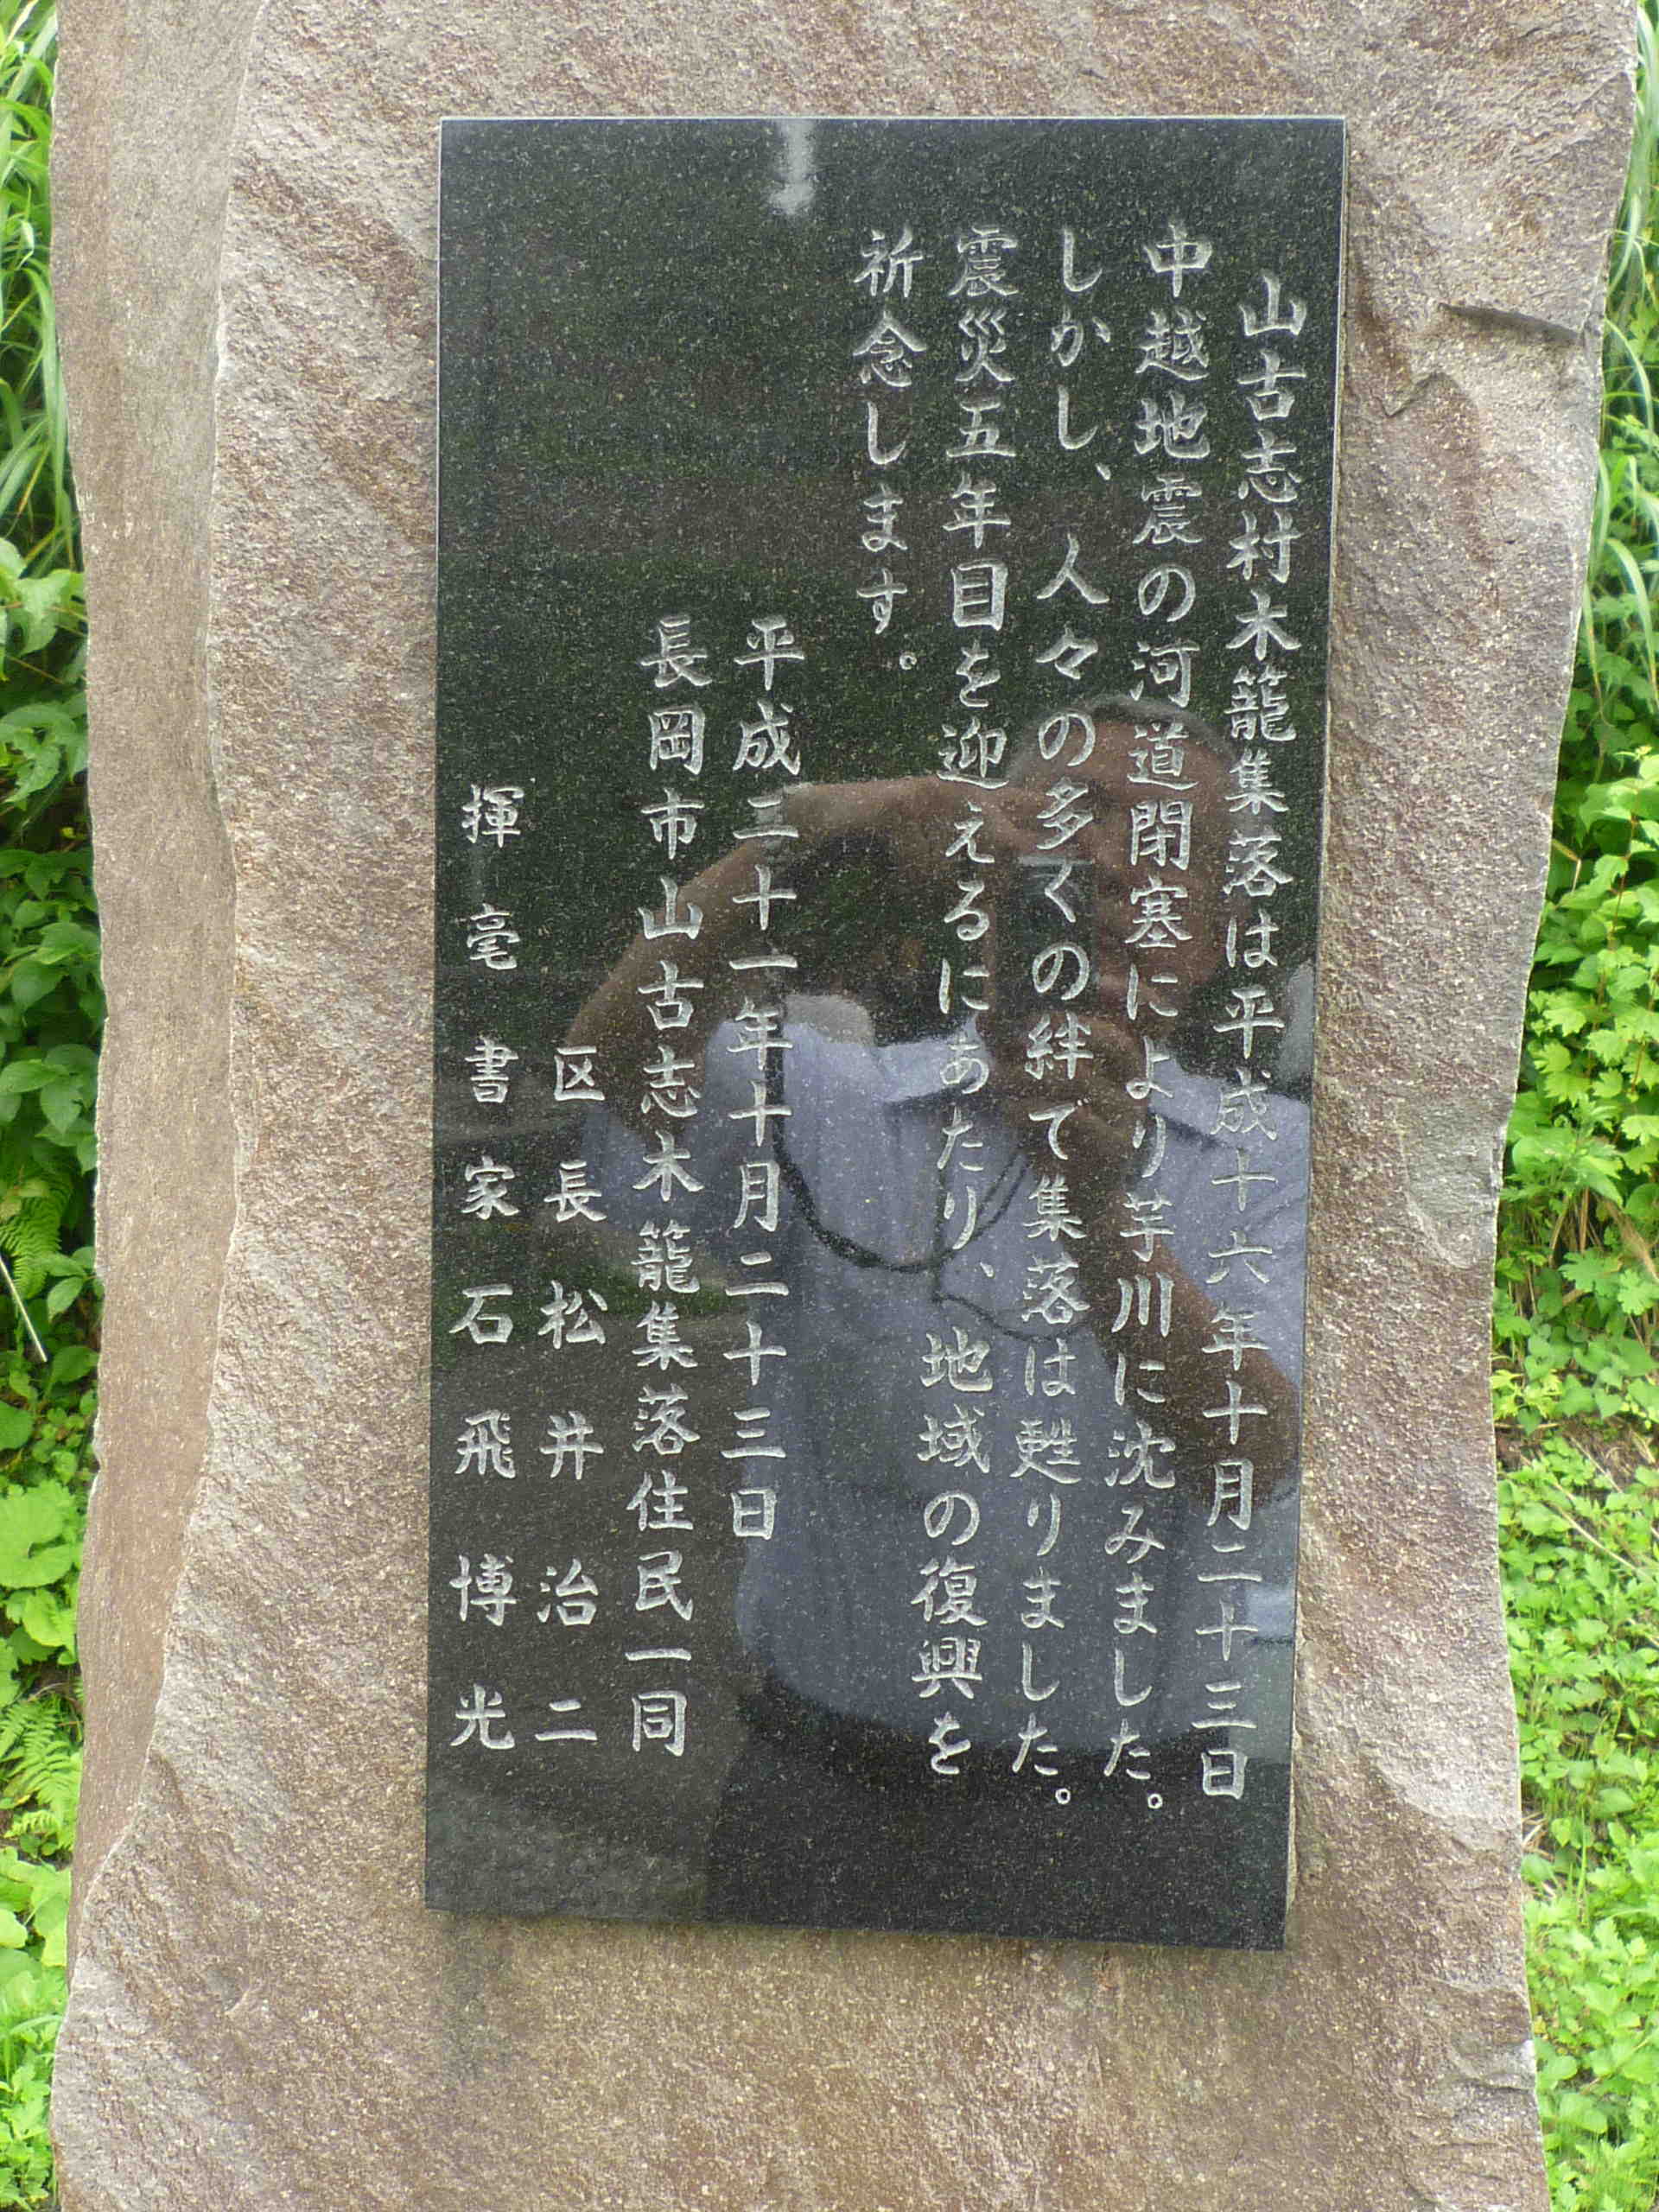 山古志村木籠集落は平成十六年十月二十三日
中越地震の河道閉塞により芋川に沈みました。
しかし、人々の多くの絆で集落は甦りました。
震災五年目を迎えるにあたり、地域の復興を
祈念します。
平成二十一年十月二十三日
長岡市山古志木籠集落住民一同
区長松井治二
揮毫書家石飛博光